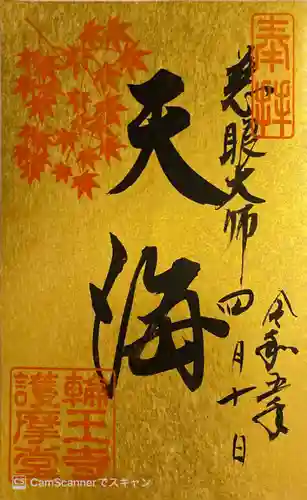 奉拝
慈眼大師 四月十日
令和五年
天海
輪王寺
護摩堂
CamScannerでスキャン